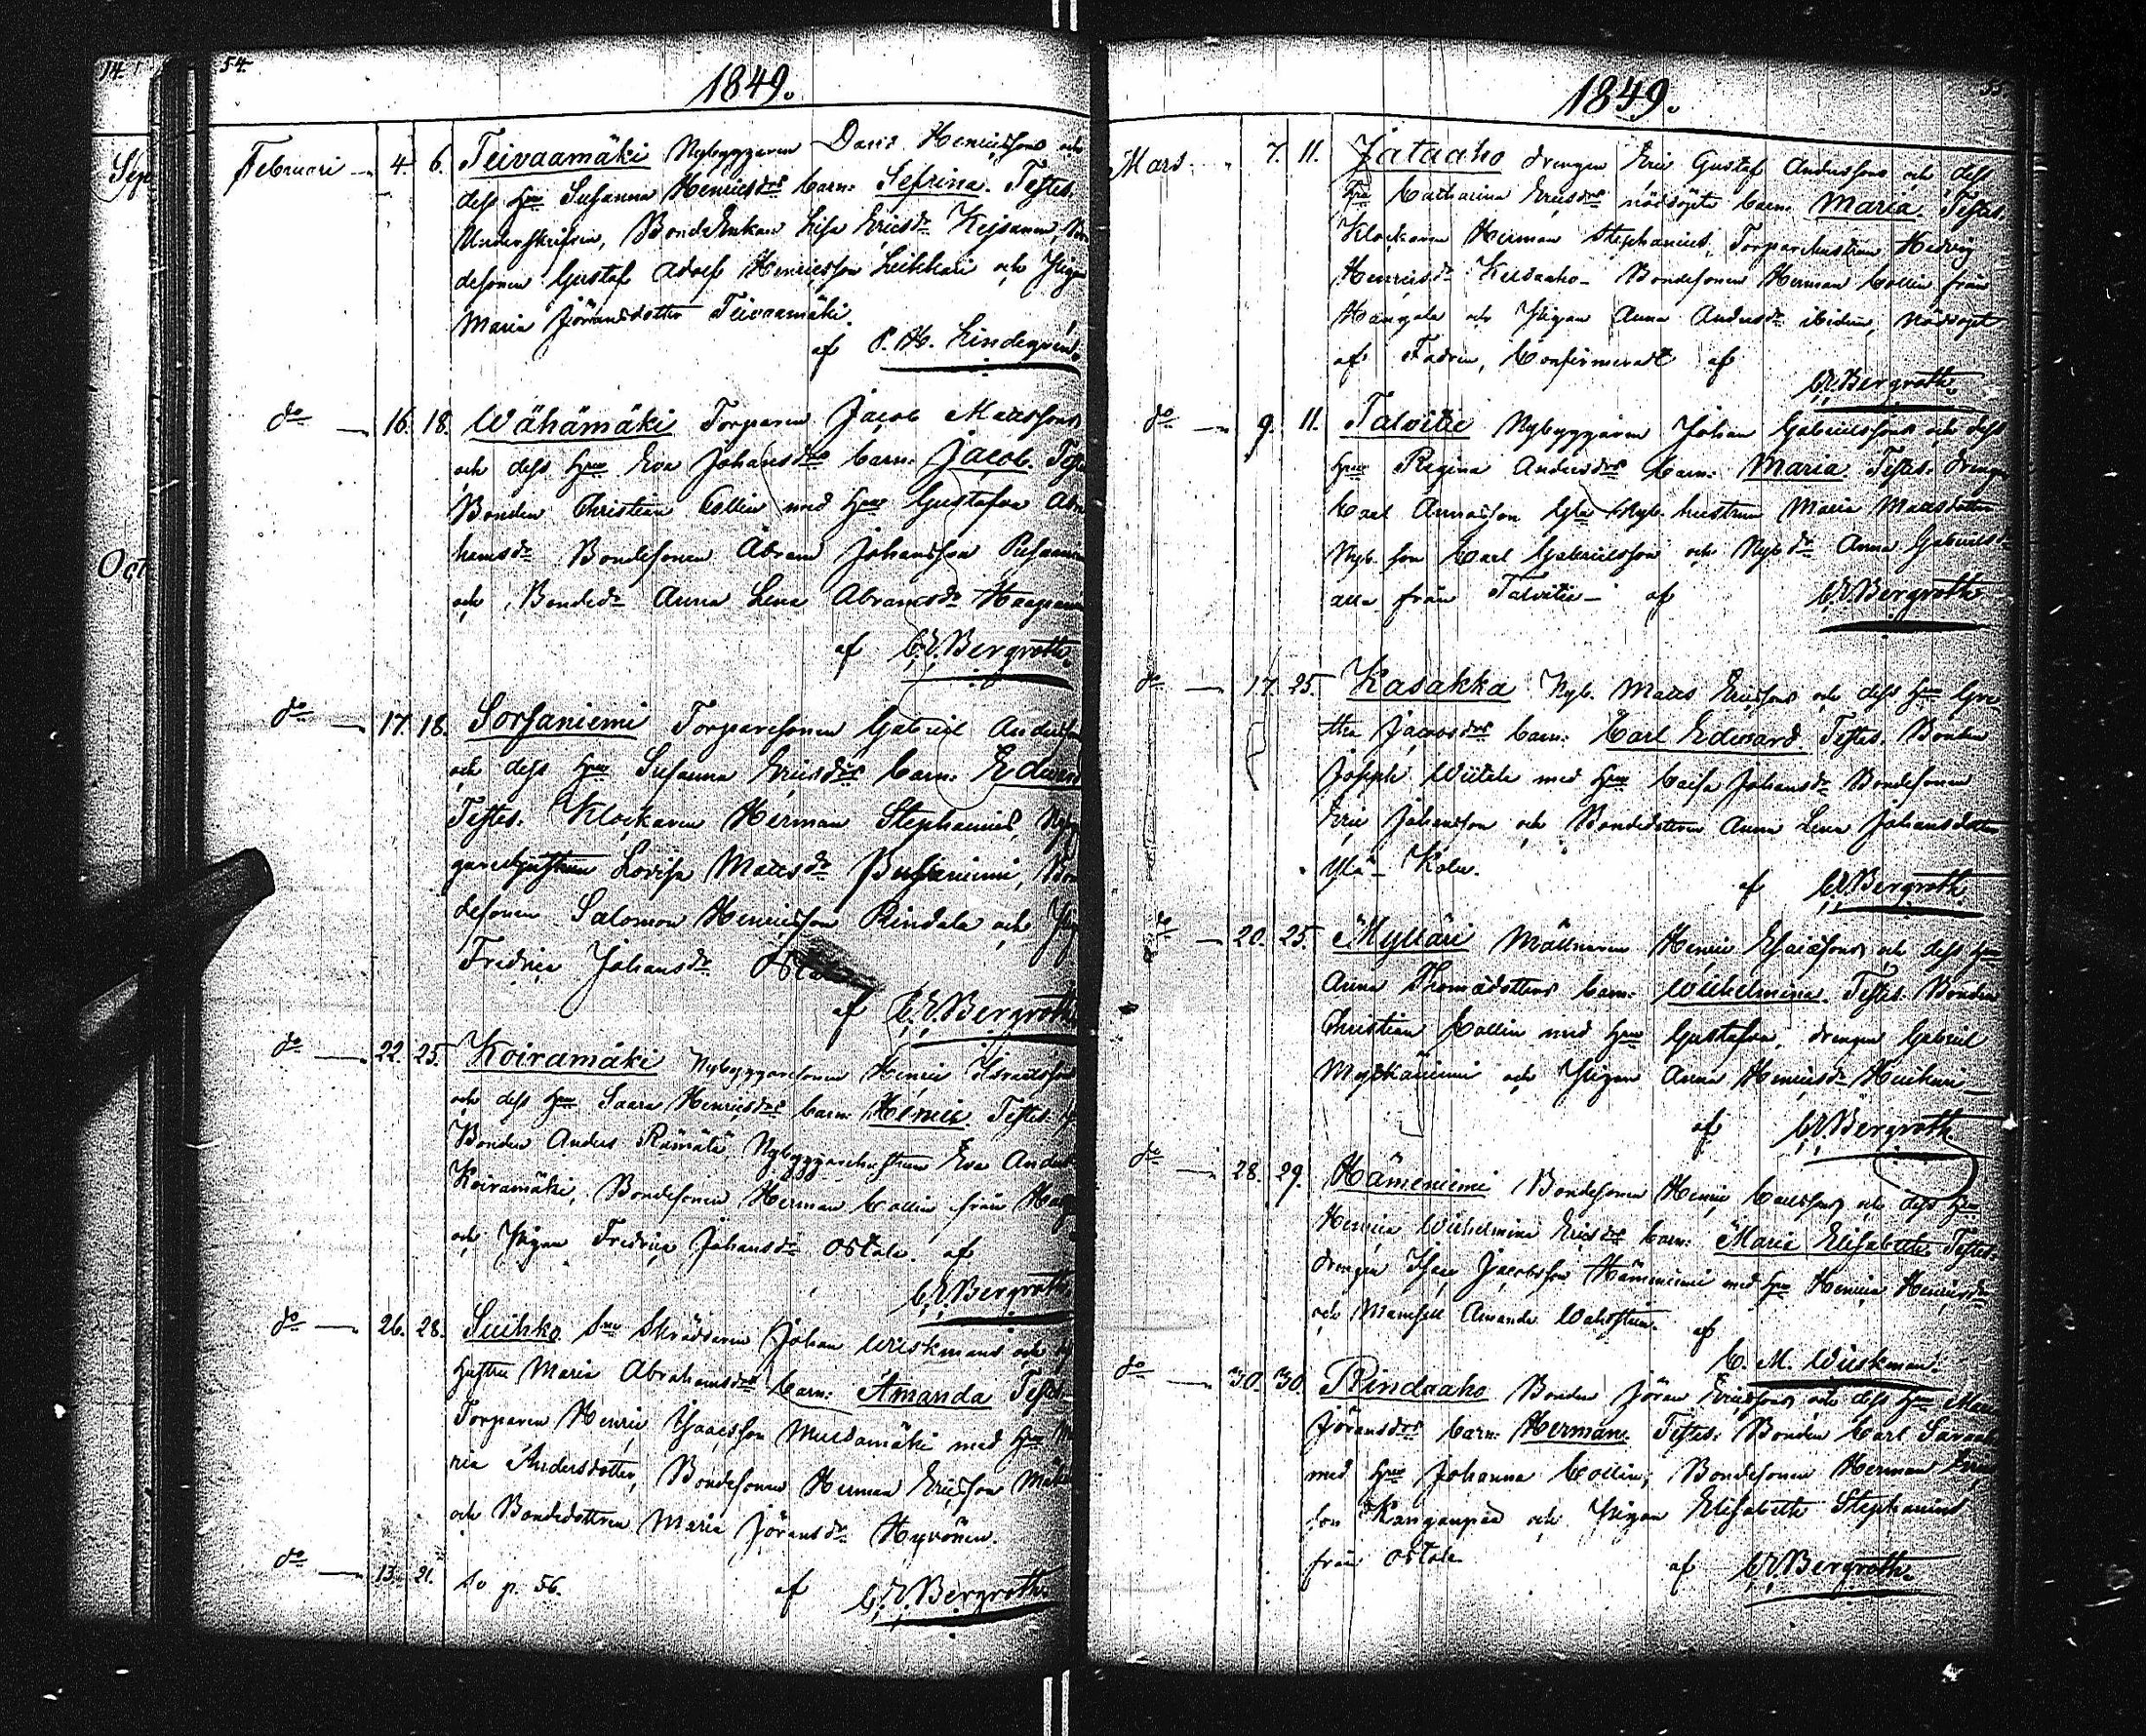 14.
54.
1849.
Sep
Oct
Februari 4. 6. Teivaamäki Nybyggaren David Henricssons och
dess Hru Susanna Henricsdrs barn: Sefrina. Testes.
Underskrifvin, Bonde Enkan Lisa Ericsdr
desonen Gustaf Adolf Henricsson Leikkari och Pigan
Maria Jöransdotter Teivaamäki.
af P. H. Lindegrén.
do 16. 18. Wähämäki Torparen Jacob Matssons
och dess Hru Eva Johansdrs barn: Jacob. Test
Bonden Christian Collin med Hru Gustafva Abra
hamsdr Bondesonen Abram Johansson
och Bondedr Anna Lena Abramsdr
af C. E. Bergroth.
do 17. 18. Sorsaniemi Torparesonen Gabriel Anders
och dess Hru Susanna Ericsdrs barn: Edward
Testes. Klockaren Herman Stephanius, Nyby
garehustrun Lovisa Matsdr Bon
desonen Salomon Henricsson Rindala och Pig
Fredrica Johansdr Ostola
af C. E. Bergroth
do 22. 25. Koiramäki Nybyggaresonen Henric Israelssons
och dess Hru Saara Henricsdrs barn: Henric. Testes.
Bonden Anders Rämälä, Nybyggarehustrun Eva Anders
Koiramäki, Bondesonen Herman Collin från
och Pigan Fredrica Johansdr Ostola af
C. E. Bergroth
do 26. 28. Suihko Skräddaren Johan Wiskmans och
hustru Maria Abrahamsdrs barn: Amanda Testes
Torparen Henric Isaacsson Mustamäki med Hru Ma
ria Andersdotter, Bondesonen Herman Ericsson
och Bondedottren Maria Jöransdr Hyvönen.
do 13. 21. Se p. 56. af C. E. Bergroth.
55.
1849.
Mars. 7. 11. Jätaaho drengen Eric Gustaf Anderssons och dess
Hru Catharina Ericsdrs nöddöpte barn: Maria. Testes.
Klockaren Herman Stephanius, Torparehustrun Hedvig
Henricsdr Bondesonen Herman Collin från
Hangala och Pigan Anna Andersdr ibidem, Nöddöpt
af Fadren, Confirmeradt af
C. E. Bergroth.
do 9. 11. Talvitie Nybyggaren Johan Gabrielssons och dess
Hru Regina Andersdrs barn: Maria. Testes. drengen
Carl Nyb. hustrun Maria Matsdotter
Nyb. son Carl Gabrielsson och Nyb dr Anna Gabrielsdr
alla från Talvitie af C. E. Bergroth.
do 17. 25. Kasakka Nyb. Matts Ericssons och dess Hru Gre
tha Jacobsdrs barn: Carl Edward. Testes. Bonden
Joseph med Hru Caisa Johansdr Bondesonen
Eric Johansson och Bondedottren Anna Lena Johansdotter
Ylä-Kolu.
af C. E. Bergroth
do 20. 25. Mylläri Möllnaren Henric Esaiæsons och dess Hru
Anna Thomædotters barn: Wilhelmina. Testes. Bonden
Christian Collin med Hru Gustafva, drengen Gabriel
och Pigan Anna Henricsdr
af C. E. Bergroth.
do 28. 29. Hämeniemi Bondesonen Henric Carlssons och dess Hru
Henrica Wilhelmina Ericsdrs barn: Maria Elisabeth. Testes.
drengen Isac Jacobsson Hämeniemi med Hru Henrica Henricsdr
och Mamsell Amanda af
C. M. Wiskman.
do 30. 30. Rindaaho Bonden Jöran Ericssons och dess Hru Maria
Jöransdrs barn: Herman. Testes. Bonden Carl
med Hru Johanna Collin, Bondesonen Herman
son Kangaspää och Pigan Elisabeth Stephanius
från Ostola af C. E. Bergroth.